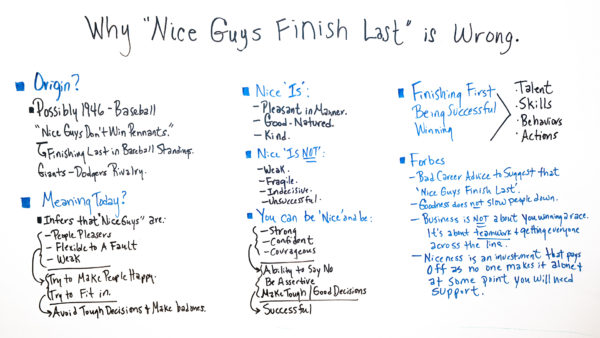 Why "Nice Guys Finish Last" is Wrong.
Origin?
Possibly 1946 - Baseball
"Nice Guys Don't Win Pennants."
Finishing Last in Baseball Standings.
Giants - Dodgers Rivalry.
Meaning Today?
Infers that "Nice Guys" are:
- People Pleasers
- Flexible to A Fault
- Weak
Try to Make People Happy.
Try to Fit in.
Avoid Tough Decisions & Make bad ones.
Nice 'Is':
- Pleasant in Manner.
- Good-Natured.
- Kind.
Nice 'Is NOT':
- Weak.
- Fragile.
- Indecisive.
- Unsuccessful.
You can be 'Nice' and be:
- Strong
- Confident
- Courageous
Ability to Say No
Be Assertive
Make Tough / Good Decisions
Successful
Finishing First
Being Successful
Winning
· Talent
· Skills
· Behaviors
· Actions
Forbes
- Bad Career Advice to Suggest that
'Nice Guys Finish Last'.
- Goodness does not slow people down.
- Business is NOT about you winning a race.
It's about teamwork & getting everyone
across the line.
- Niceness is an investment that pays
off as no one makes it alone &
at some point you will need
support.